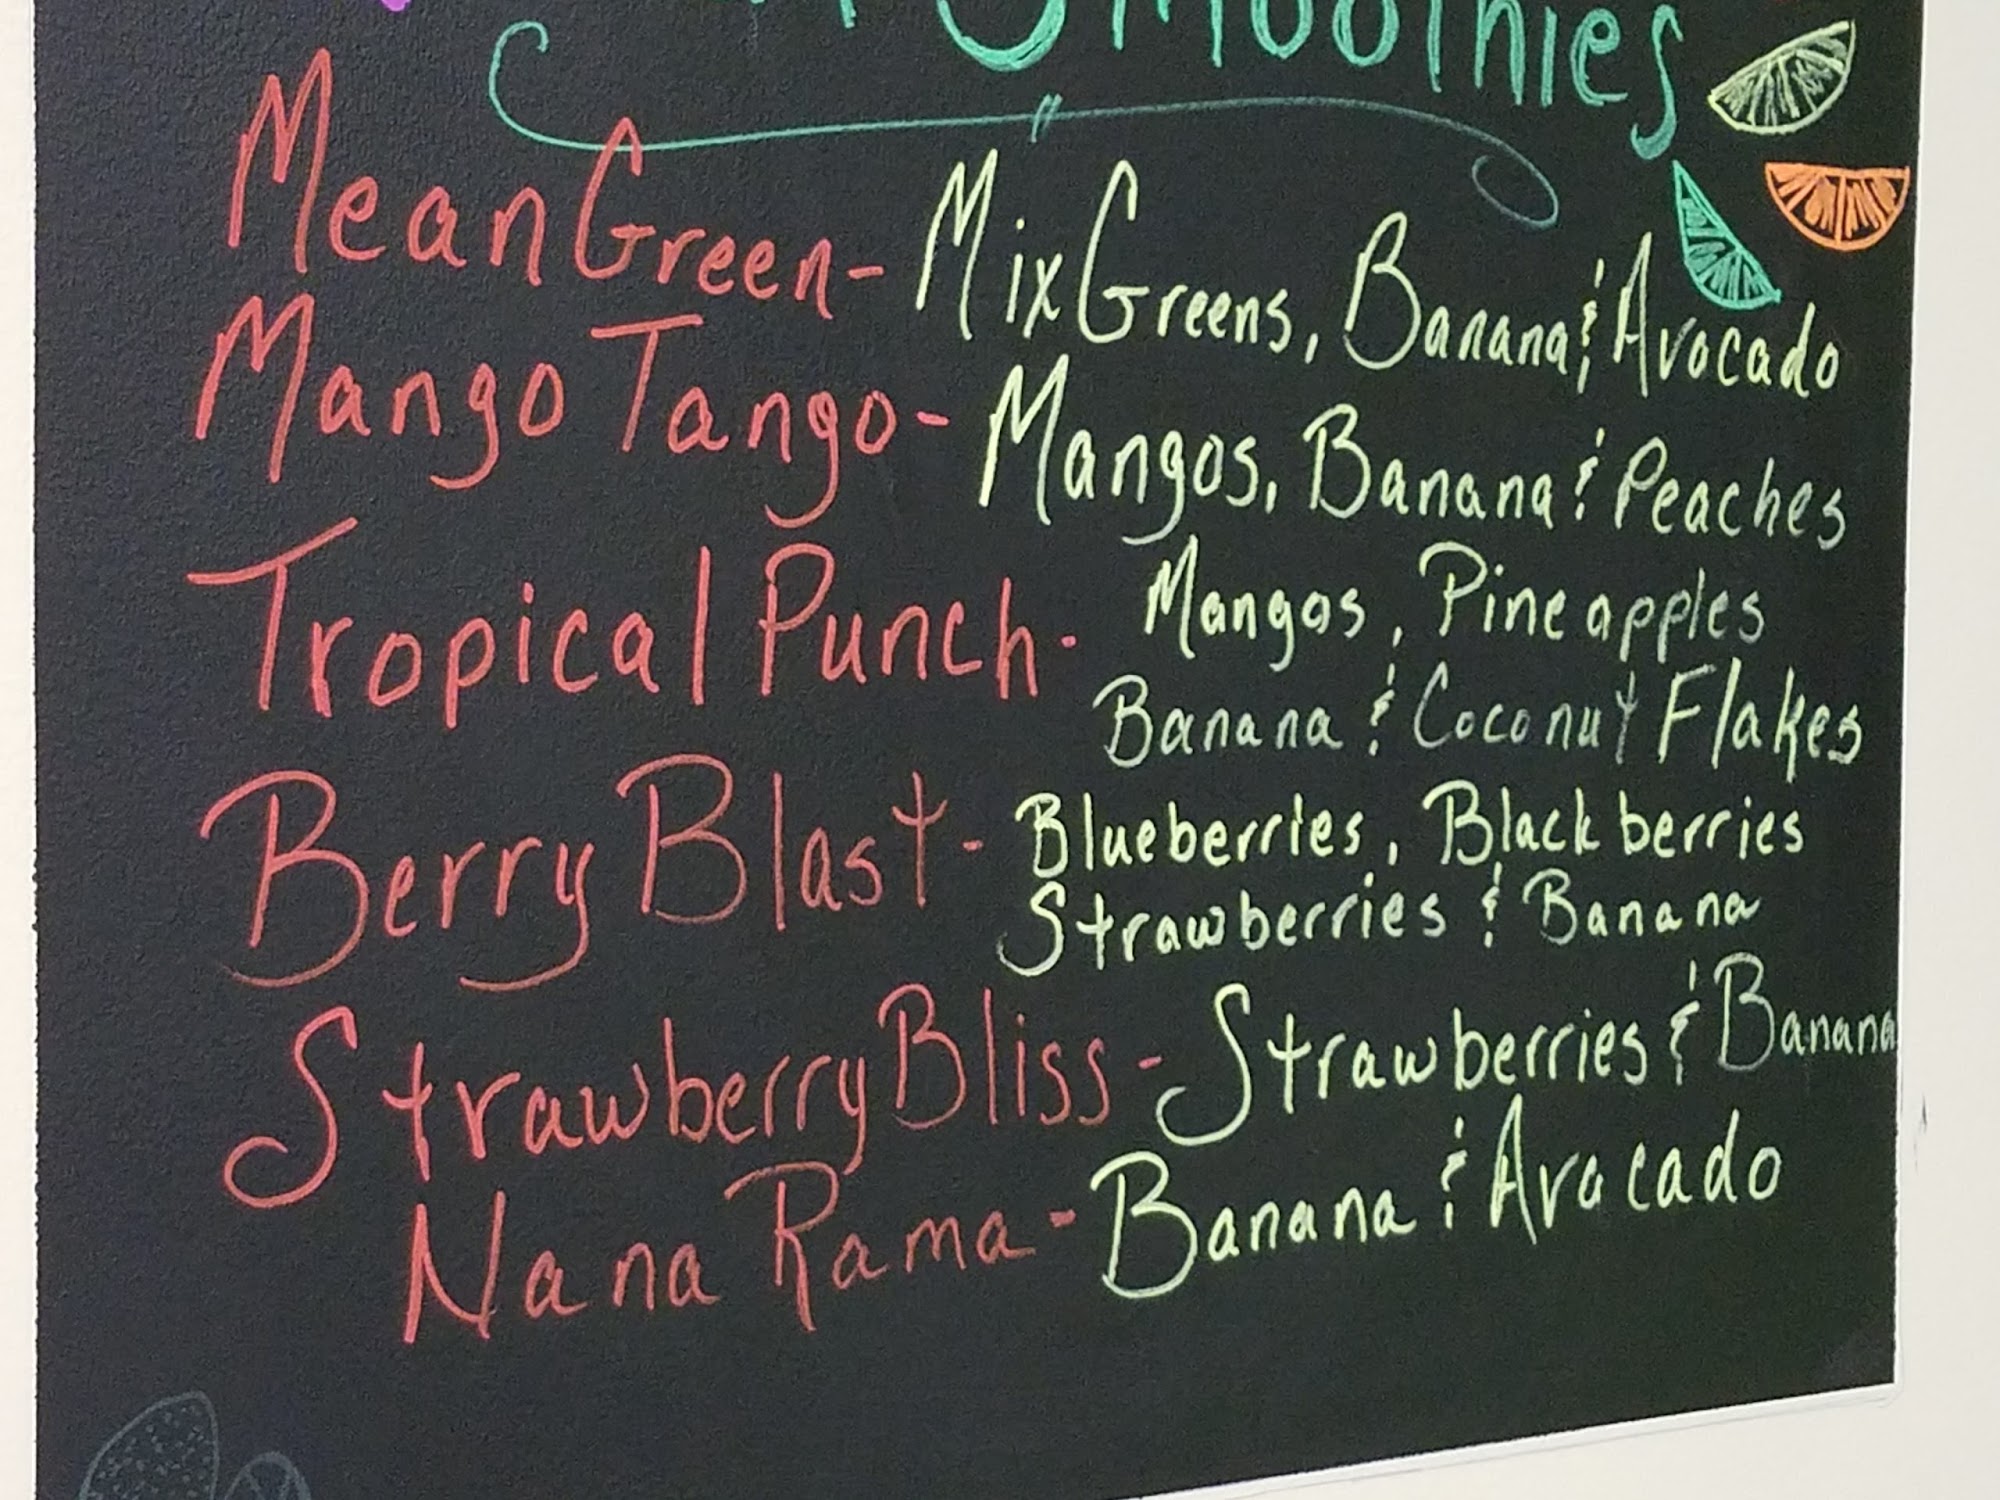 Smoothies
Mean Green - Mix Greens, Banana & Avocado
Mango Tango - Mangos, Banana & Peaches
Tropical Punch - Mangos, Pineapples
Banana & Coconut Flakes
Berry Blast - Blueberries, Blackberries
Strawberries & Banana
Strawberry Bliss - Strawberries & Banana
Nana Rama - Banana & Avocado